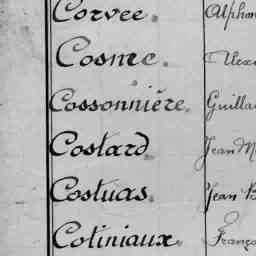 Corvee. Alphon
Cosme. Alex
Cossonnière. Guilla
Costard. Jean M
Costuas. Jean B
Cotiniaux. Franço